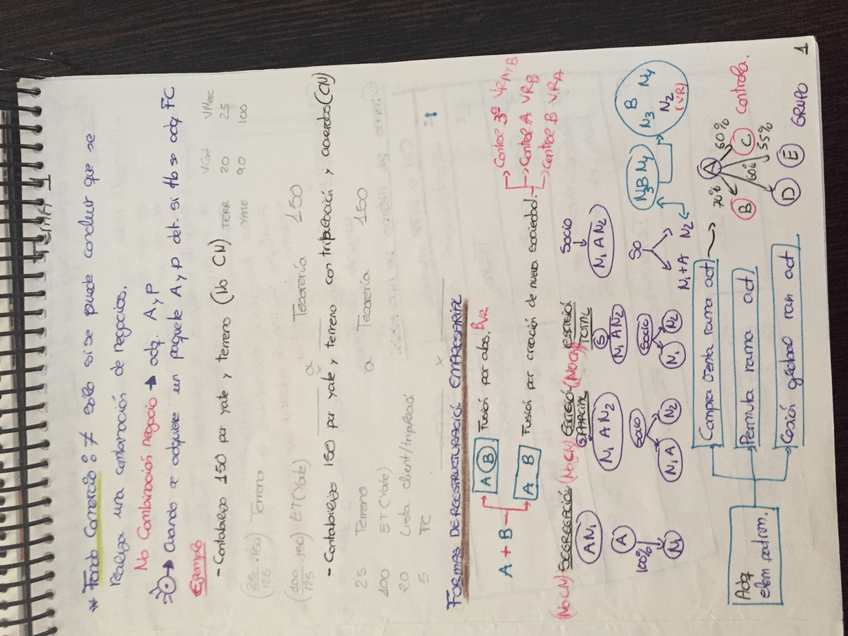 TEMA 1
* Fondo Comercio: ≠ sólo si se puede concluir que se
realiza una combinación de negocios.
No Combinación Negocio → adq. A y P
→ Cuando se adquiere un paquete A y P det. si tb se adq FC
Ejemplo
- Contabilizo 150 por yate y terreno (No CN)
Vcont VMerc
TERR 20 25
YATE 90 100
(25/125 · 150) Terreno
(100/125 · 150) ET (Yate) a Tesorería 150
- Contabilizo 150 por yate y terreno con tripulación y acuerdos (CN)
25 Terreno
100 ET (Yate)
20 Lista client/tripulació
5 FC
a Tesorería 150
FORMAS DE REESTRUCTURACIÓ EMPRESARIAL
A + B
A B Fusión por abs. BVR
A B Fusión por creación de nueva sociedad
Control 3º VR A+B
Control A VRB
Control B VRA
(No CN) SEGREGACIÓN
(No CN) ESCISIÓN PARCIAL
(No CN) ESCISIÓN TOTAL
A N1
A
100%
N1
S
N1 A N2
Socio
N1 A
N2
S
N1 A N2
Socio
N1
N2
Socio
N1 A N2
SO
N1 + A
N2
N3 B N4
N3 B N4
N2
(VR)
Adq
elem patrim.
Compra venta rama act
Permuta rama act
Cesión global ram act
A
70%
60%
B
C
controla.
60%
55%
D
E
GRUPO
1